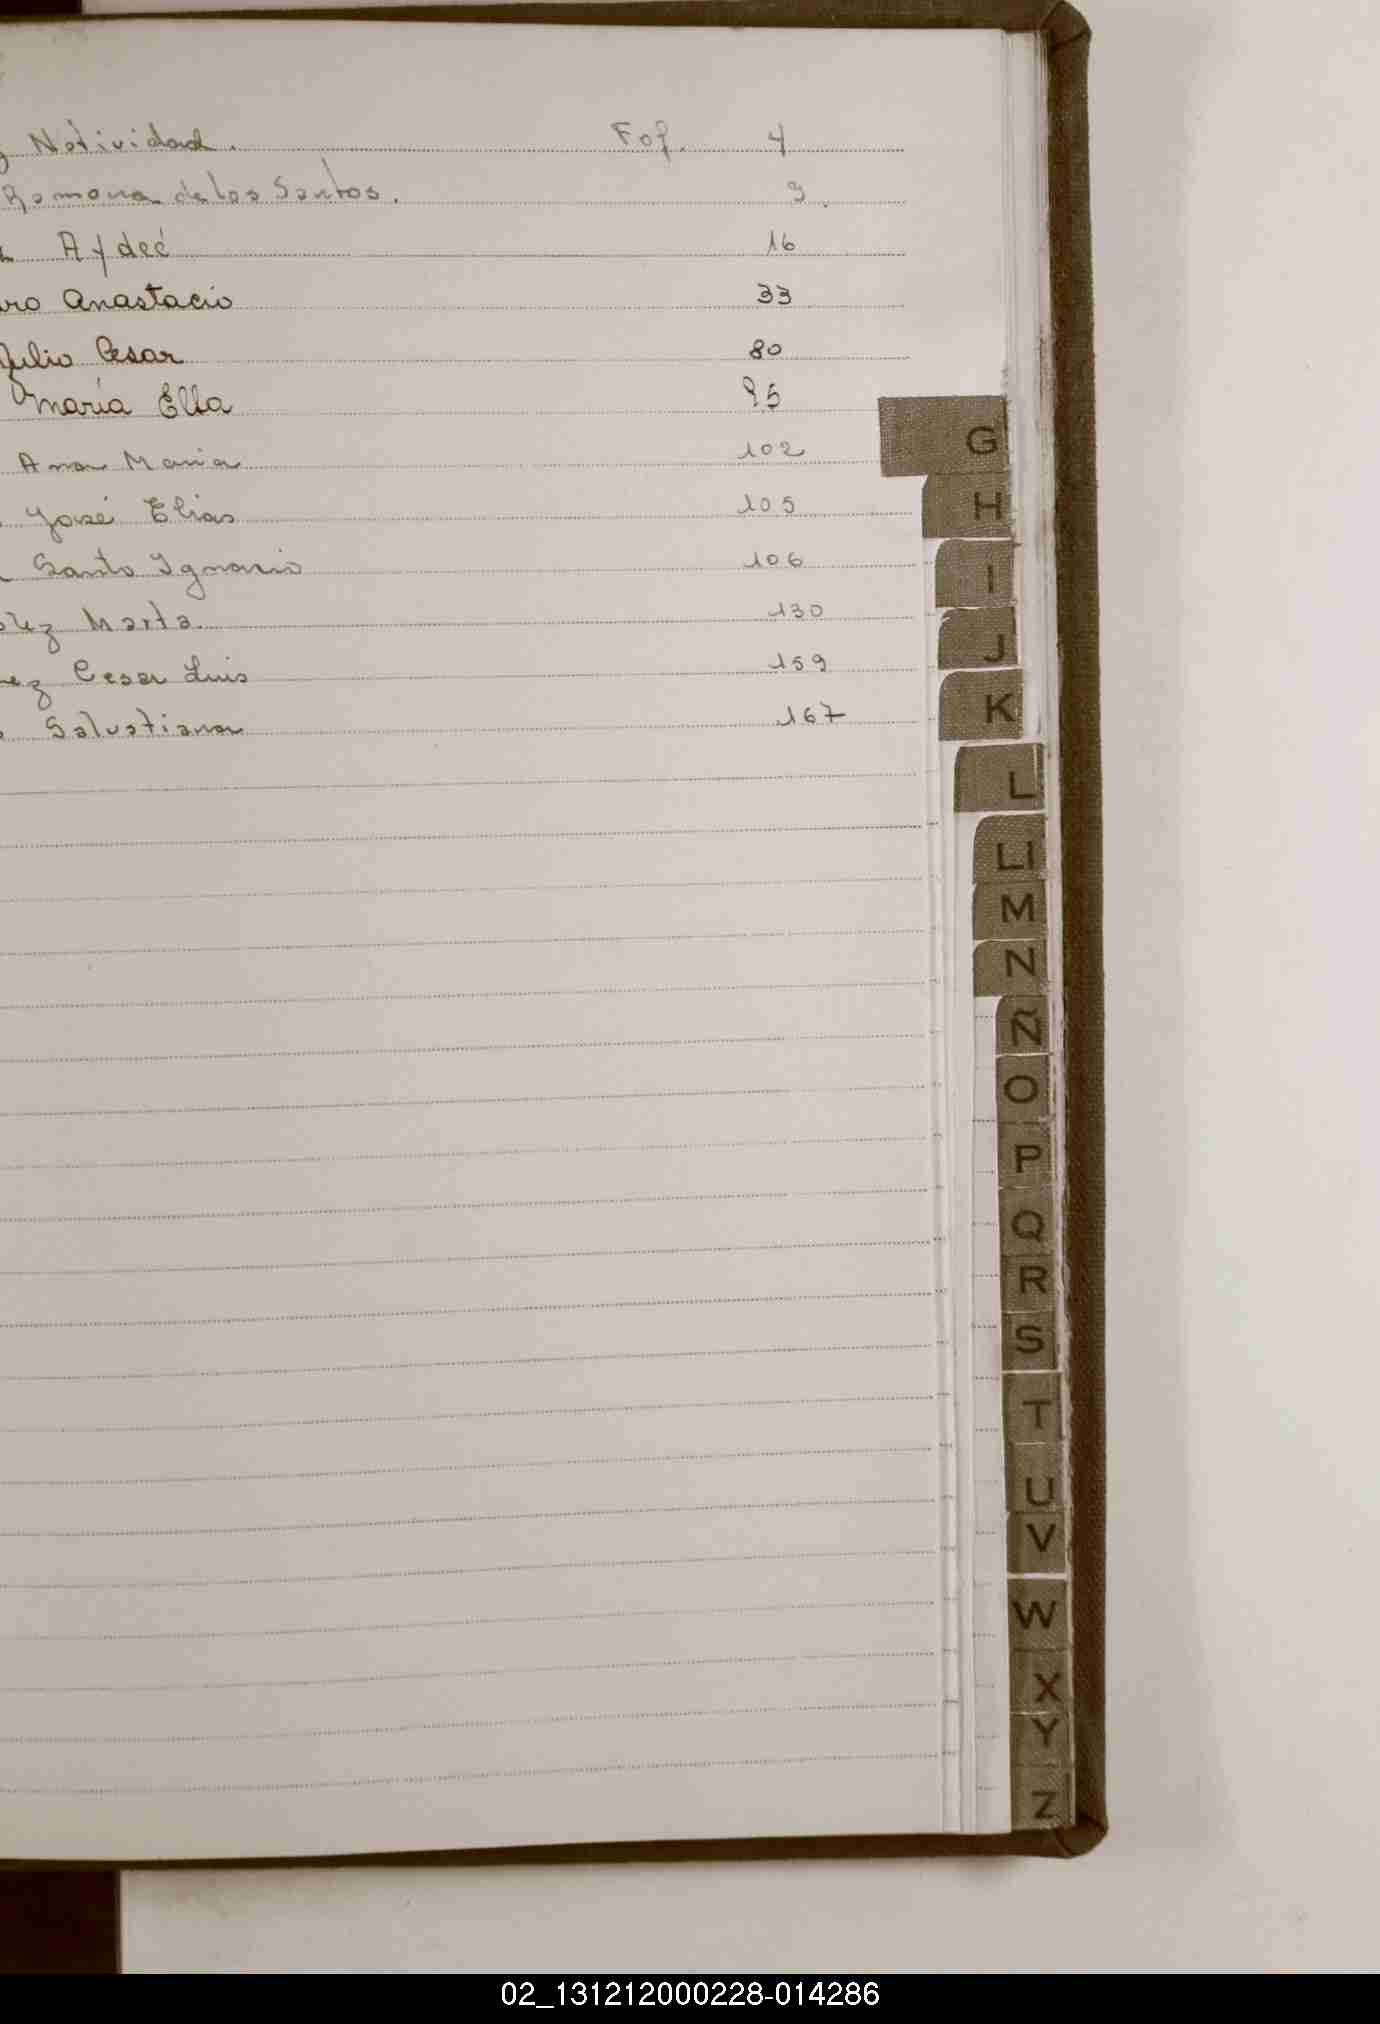 Natividad. Fol. 4
Ramona de los Santos. 3.
Aydeé 16
Anastacio 33
Julio Cesar 80
María Ella 95
Ana Maria 102
José Elias 105
Santo Ignacio 106
Marta. 130
Cesar Luis 159
Salustiana 167
G
H
I
J
K
L
Ll
M
N
Ñ
O
P
Q
R
S
T
U
V
W
X
Y
Z
02_131212000228-014286